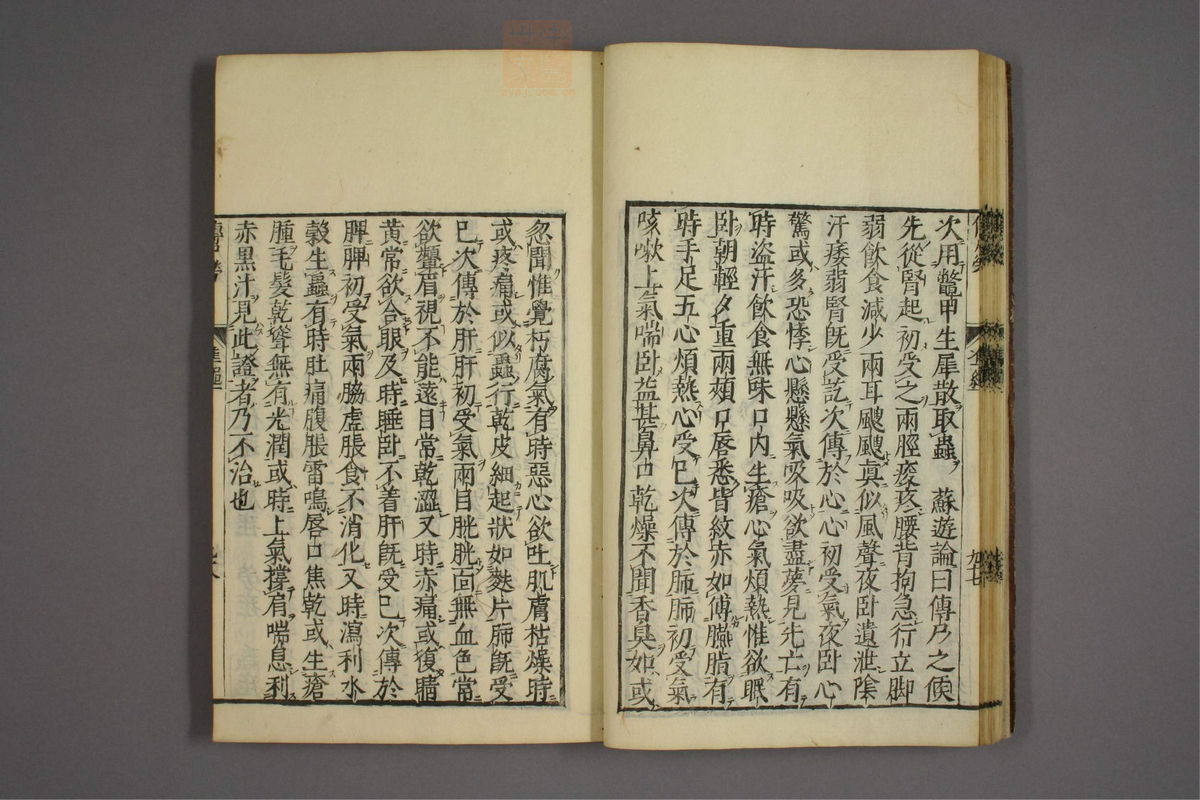 次用鼈甲生犀散取蟲 蘇遊論曰傳尸之候
先從腎起初受之兩脛痠疼腰背拘急行立脚
弱飲食減少兩耳颼颼真似風聲夜卧遺泄陰
汗痿弱腎既受訖次傳於心心初受氣夜卧心
驚或多恐悸心懸懸氣吸吸欲盡夢見先亡有
時盗汗飲食無味口内生瘡心氣煩熱惟欲眠
卧朝輕夕重兩頰口唇悉皆紋赤如傅臙脂有
時手足五心煩熱心受已次傳於肺肺初受氣
咳嗽上氣喘卧益甚鼻口乾燥不聞香臭如或
忽聞惟覺朽腐氣有時惡心欲吐肌膚枯燥時
或疼痛或似蟲行乾皮細起狀如麩片肺既受
已次傳於肝肝初受氣兩目胱胱面無血色常
欲顰眉視不能遠目常乾澀又時赤痛或復睛
黄常欲合眼及時睡卧不着肝既受已次傳於
脾脾初受氣兩脇虚脹食不消化又時瀉利水
穀生蟲有時肚痛腹脹雷鳴唇口焦乾或生瘡
腫毛髮乾聳無有光潤或時上氣撐肩喘息利
赤黒汁見此證者乃不治也